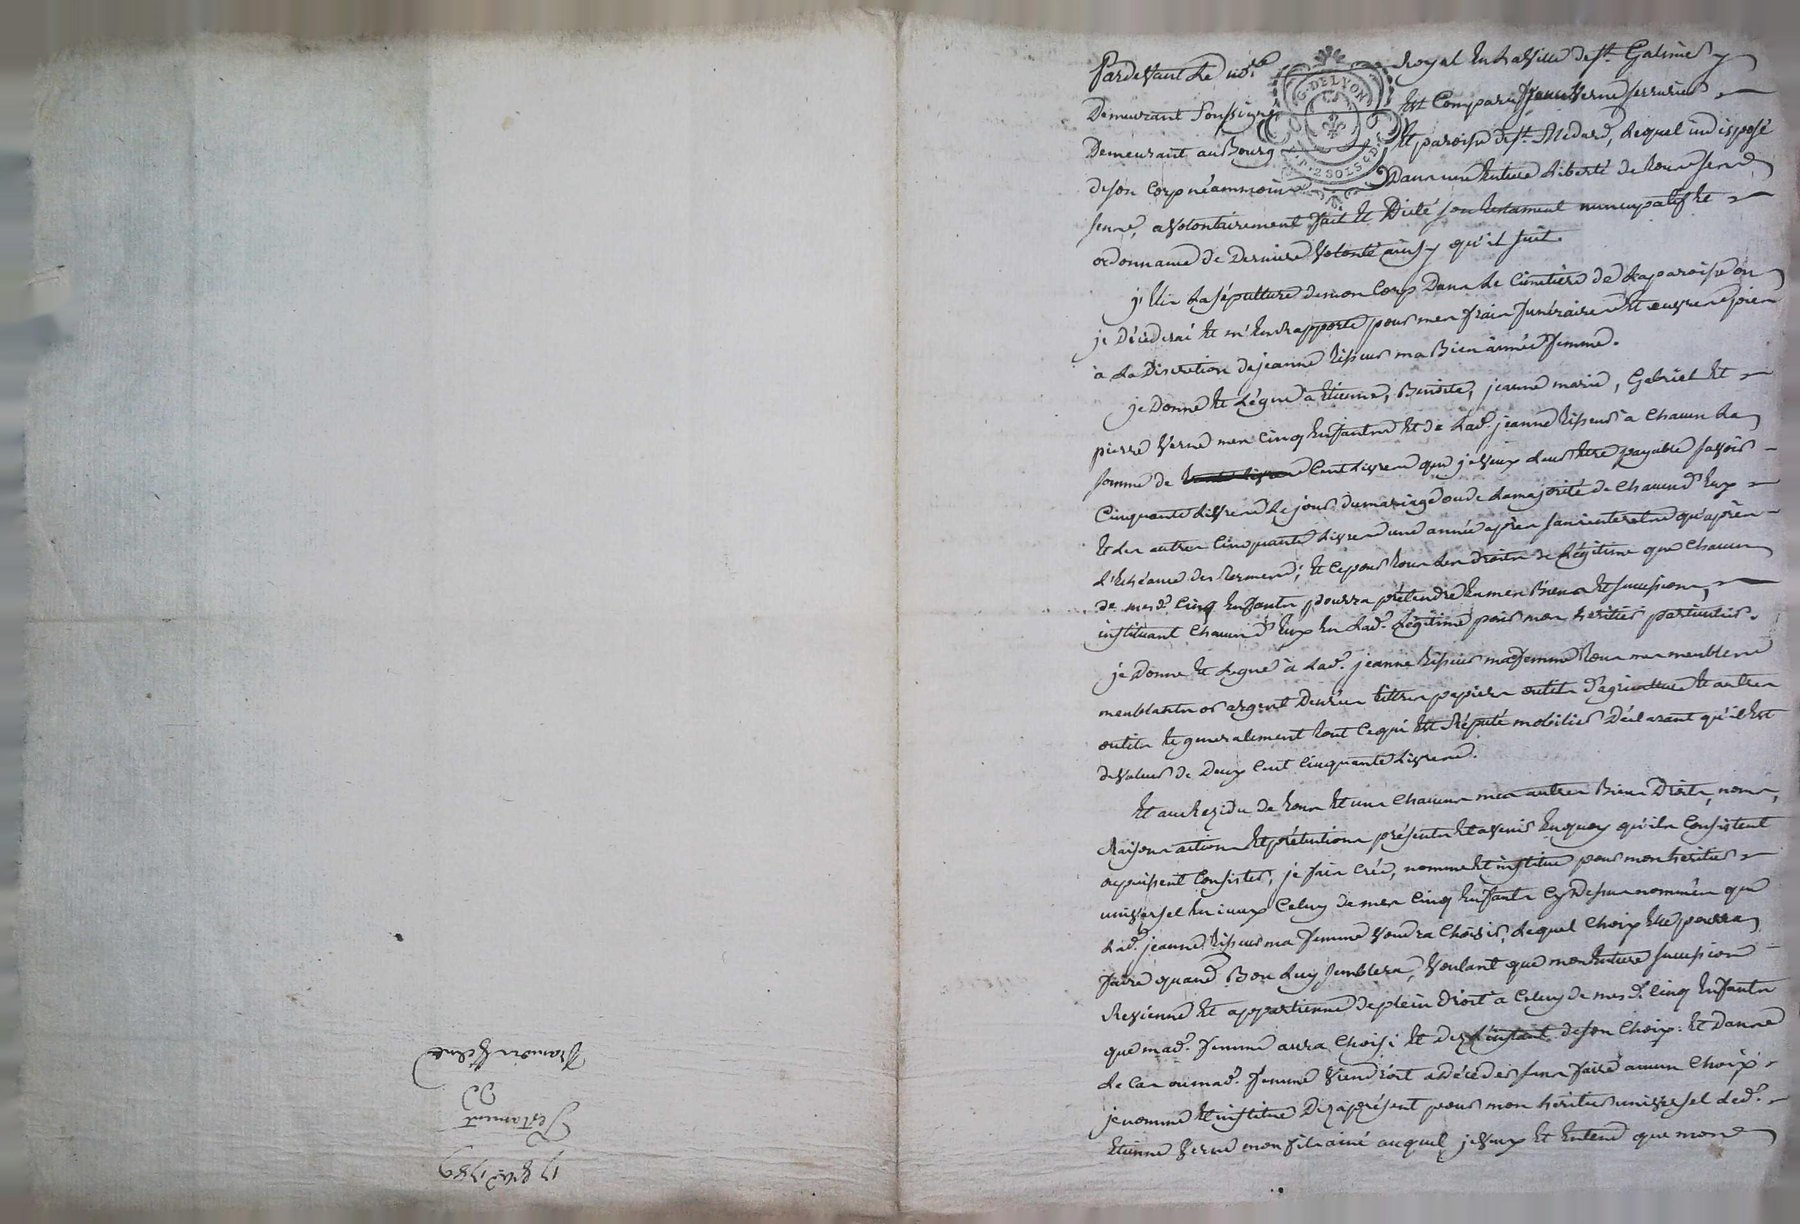 Pardevant Le no.re Royal En La Ville de St. Galmier y
Demeurant Soussigné Est Comparu Verne serrurier
Demeurant au Bourg Et paroisse de St. Medard, Lequel indisposé
de son Corp néanmoins Dans une Entiere Liberté de Tous ses
sens, a Volontairement fait Et Dicté son testament nuncupatif Et
ordonnance de Derniere Volonté ainsy qu'il suit.
j'Elis La sépulture de mon Corp Dans Le Cimetiere de La paroisse ou
je Décederai Et m'En Rapporte pour mes frais funeraires Et œuvres pies
à La Discretion de jeanne ma Bien aimée femme.
je Donne Et Légue à Etienne, Benoite, jeanne marie, Gabriel Et
pierre Verne mes Cinq Enfants Et de Lad. jeanne à Chacun La
somme de Cent Livres que je Veux Leur Etre payable savoir
Cinquante Livres Le jour du mariage ou de La majorité de Chacun d'Eux
Et Les autres Cinquante Livres une année après sans interets qu'après
L'Echéance des Termes, Et Ce pour Tous Les droits de Légitime que Chacun
de mesd. Cinq Enfants pourra prétendre En mes Biens Et succession,
instituant Chacun d'Eux En Lad. Légitime pour mon heritier particulier.
je Donne Et Legue à Lad. jeanne ma femme Tous mes meubles
meublants or argent Denrées titres papiers outils d'agriculture Et autres
outils Et generalement Tout Ce qui Est Réputé mobilier Déclarant qu'il Est
de Valeur de Deux Cent Cinquante Livres.
Et au Rezidu de Tous Et uns Chacuns mes autres Biens Droits, noms,
Raisons actions Et prétentions présents Et avenir En quoy qu'ils Consistent
ou puissent Consister, je fais Crée, nomme Et institue pour mon heritier
universel Celuy de mes Cinq Enfants Cy Dessus nommés que
Lad. jeanne ma femme voudra Choisir, Lequel Choix Elle pourra
faire quand Bon Luy semblera, Voulant que mon Entiere succession
Revienne Et appartienne de plein Droit à Celuy de mesd. Cinq Enfants
que mad. femme aura Choisi Et dez L'instant de son Choix: Et Dans
Le Cas ou mad. femme Viendroit a décéder sans faire aucun Choix
je nomme Et institue Dez àprésent pour mon heritier universel Led.
Etienne Verne mon fils ainé auquel je Veux Et Entend que mon
17 1789
Testament
Verne